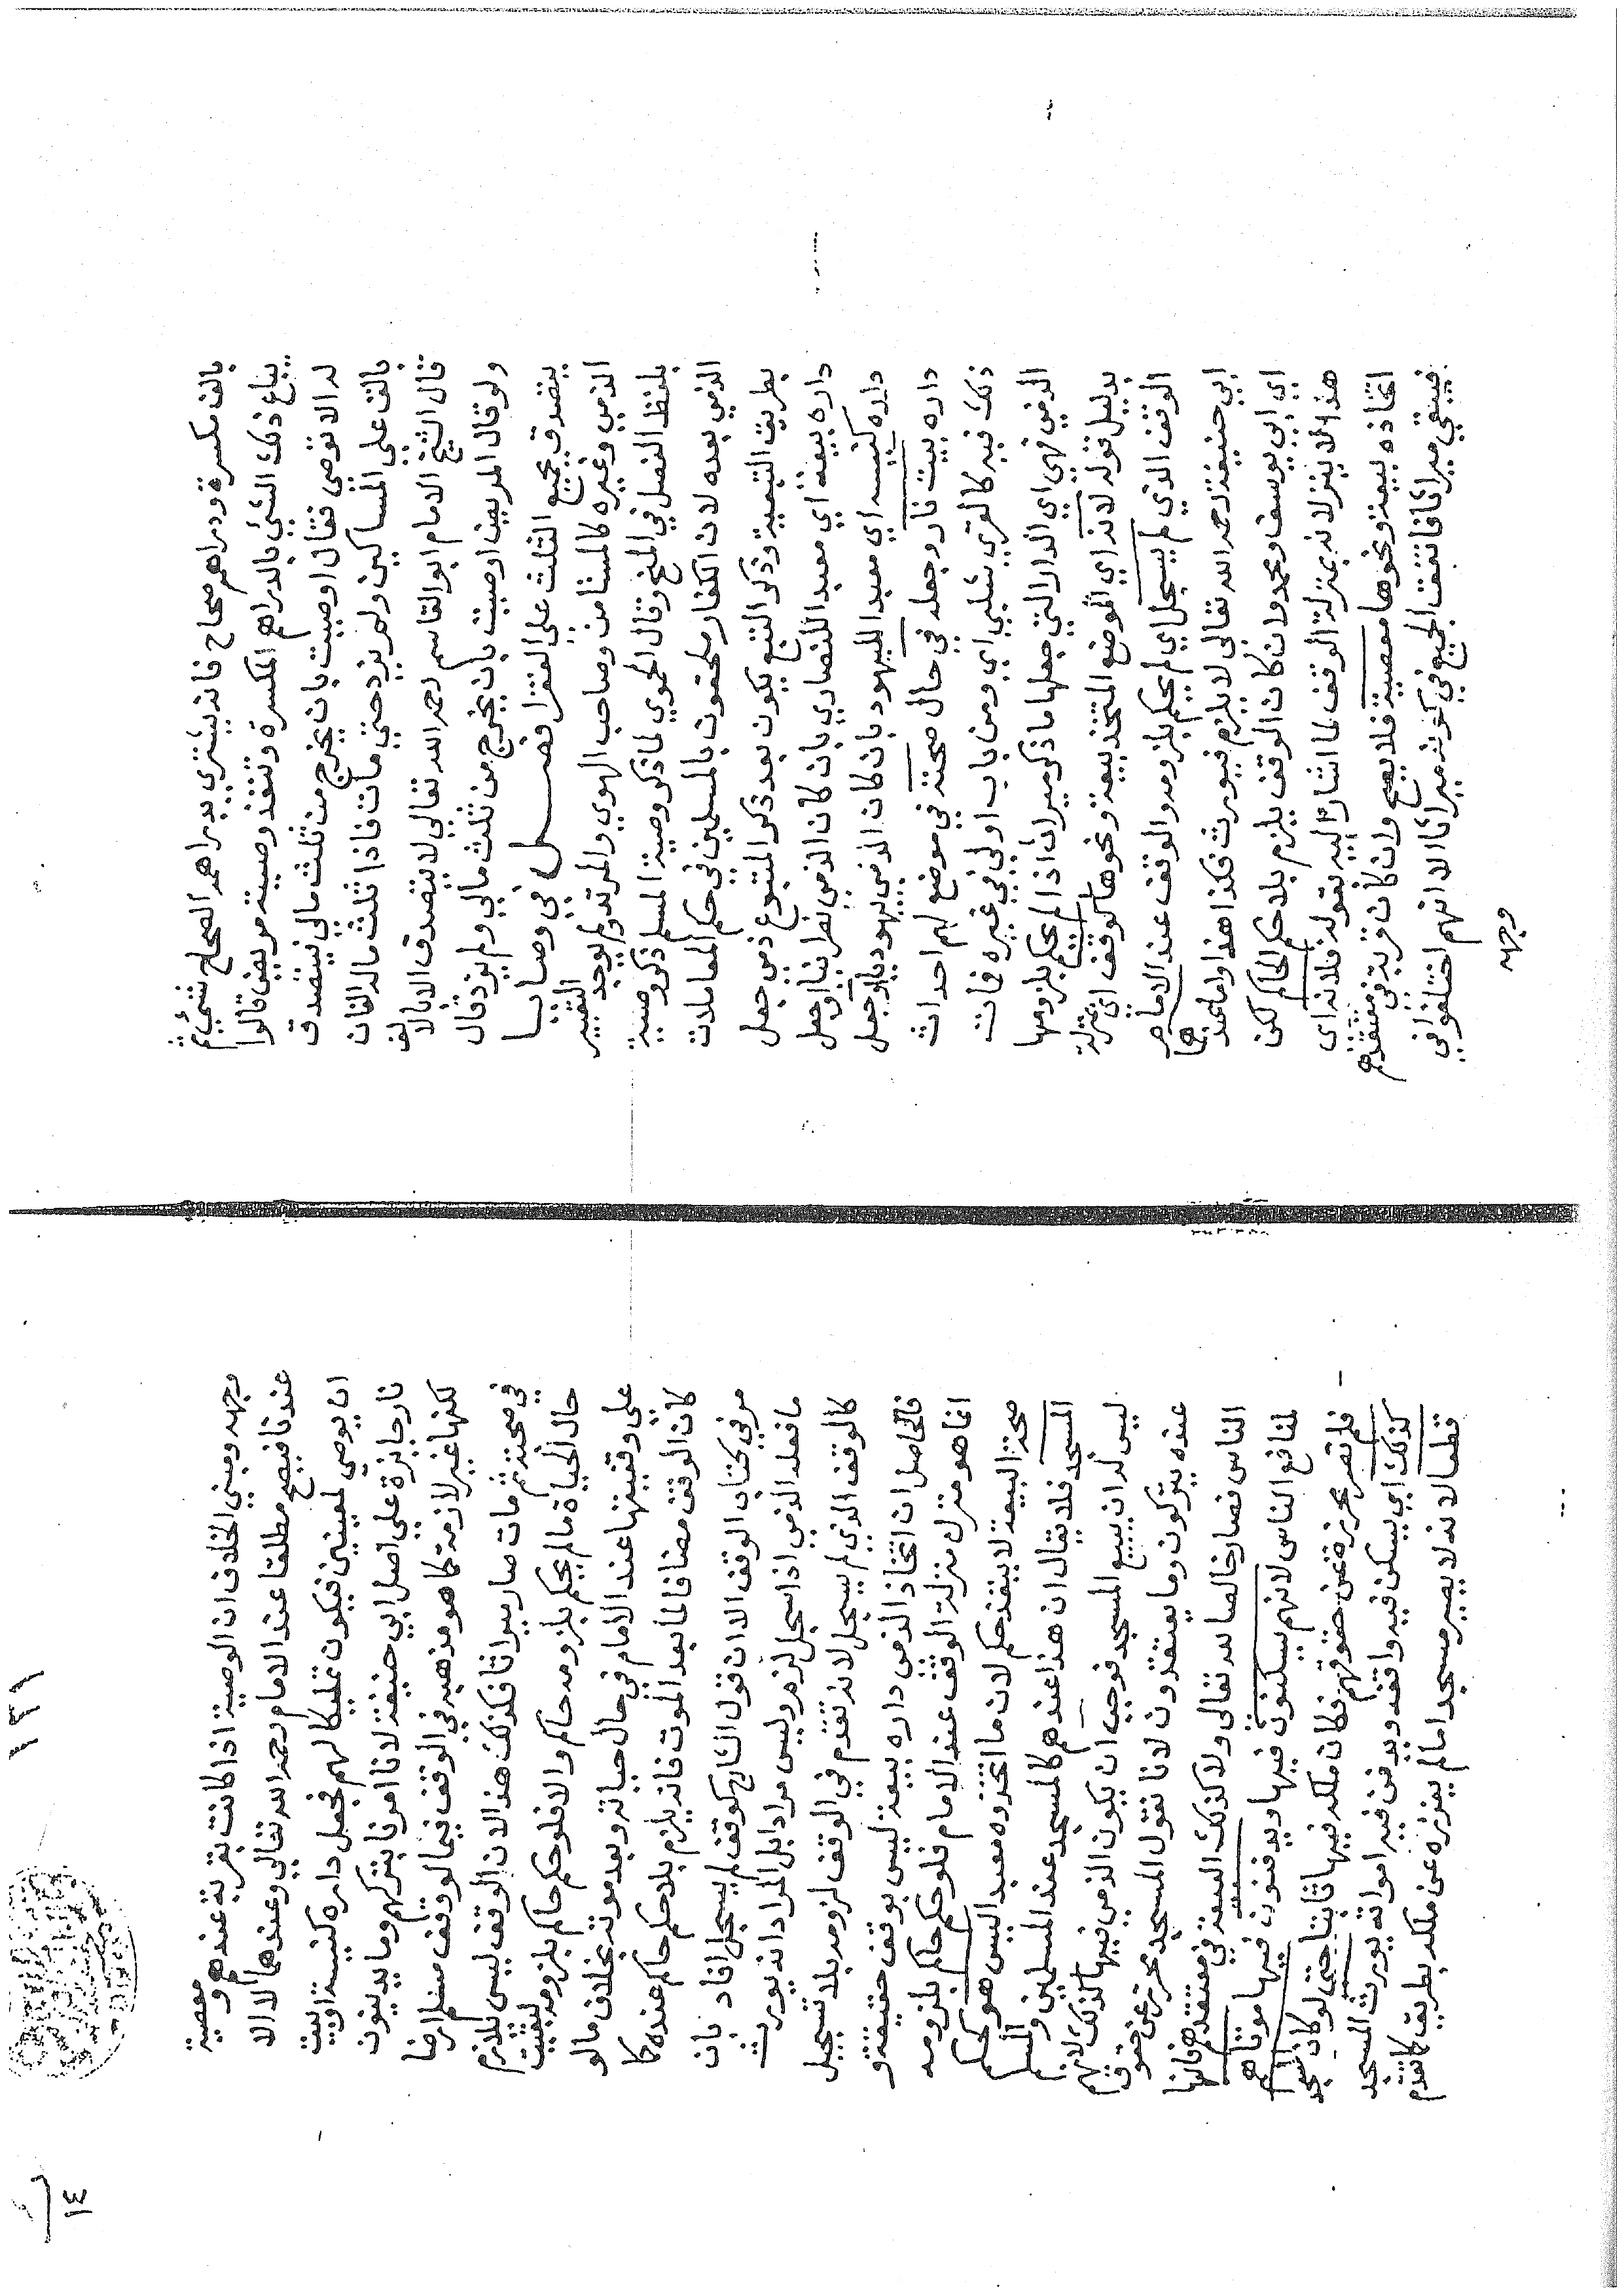 بالف مكسرة ودراهم صحاح فانه يشتري بدراهمه الصحاح شيئ ثم
يباع ذلك الشيئ بالدراهم المكسرة وتنفذ وصيته مريض قالوا
له الا توصي فقال اوصيت بان يخرج من ثلث مالي فيتصدق
بالف علي المساكين ولم يزد حتي مات فاذا ثلث ماله الفان
قال الشيخ الامام ابو القاسم رحمه الله تعالي لا يتصدق الا بالالف
ولو قال المريض اوصيت بان يخرج من ثلث مالي ولم يزد قال
يتصدق بجميع الثلث علي الفقرا فصل في وصايا
الذمي وغيره كالمستامن وصاحب الهوي والمرتد ولم يوجد التعبير
بلفظ الفصل في المنح وقال الحموي لما ذكر وصية المسلم ذكر وصية
الذمي بعده لان الكفار ملحقون بالمسلمين في حكم المعاملات
بطريق التبعية وذكر التبع يكون بعد ذكر المتبوع ذمي جعل
داره بيعة اي معبد اللنصاري بان كان الذمي نصرانيا او جعل
داره كنيسه اي معبد اليهود بان كان الذمي يهوديا او جعل
داره بيت نار وجعله في حال صحته في موضع لهم احداث
ذلك فيه كالقري شلبي اي ومن باب اولي في غيره فمات
الذمي فهي اي الدار التي جعلها ما ذكر ميراث اذا لم يحكم بلزومها
بدليل قوله لانه اي الموضع المتخذ بيعة ونحوها كوقف اي بمنزلة
الوقف الذي لم يسجل اي لم يحكم بلزومه والوقف عند الامام
ابي حنيفة رحمه الله تعالي لا يلزم فيورث فكذا هذا واما عندهما
اي ابي يوسف ومحمد وان كان الوقف يلزم بلا حكم الحاكم لكن
هذا لا ينزل لانه بمنزلة الوقف لما اشار اليه بقوله فلانه اي
اتخاذه بيعة ونحوها معصية فلا يصح وان كان قربة في معتقدهم
فيبقي ميراثا فاتفقت الجميع في كونه ميراثا الا انهم اختلفوا في
وجهه
١٣١
١٤
وجهه ومبني الخلاف ان الوصية اذا كانت بقربة عندهم ومعصية
عندنا فيصح مطلقا عند الامام رحمه الله تعالي وعندهما لا الا
ان يوصي لمعينين فيكون تمليكا لهم فجعل داره كنيسة او بيت
نار جائزة علي اصل ابي حنيفة لانا امرنا بتركهم وما يدينون
لكنها غير لازمة كما هو مذهبه في الوقف فيما لو وقف مسلم ارضا
في صحته ثم مات صار ميراثا فكذلك هذا لان الوقف ليس بلازم
حال الحياة ما لم يحكم بلزومه حاكم والا فلو حكم حاكم بلزومه لبقيت
علي وقفيتها عند الامام في حال حياته وبعد موته بخلاف ما لو
كان الوقف مضافا لما بعد الموت فانه يلزم بلا حكم حاكم عنده كما
مر في كتاب الوقف الا ان قول الشارح كوقف لم يسجل افاد بان
ما فعله الذمي اذا سجل لزم وليس مراد ابل المراد انه يورث
كالوقف الذي لم يسجل لانه تقدم في الوقف لزومه بلا تسجيل
فالحاصل ان اتخاذ الذمي داره بيعة ليس بوقف حقيقة و
انما هو منزل منزلة الوقف عند الامام فلو حكم حاكم بلزومه
صحة البيعة لا ينفذ حكم لان ما اتخذوه معبد اليس هو كحكم
المسجد فلا يقال ان هذا عندهم كالمسجد عند المسلمين والمسلم
ليس له ان يبيع المسجد فوجب ان يكون الذمي فيها كذلك لانهم
عنده يتركون وما يعتقدون لانا نقول المسجد محرز عن حقوق
الناس فصار خالصا لله تعالي ولا كذلك البيعة في معتقدهم فانها
لمنافع الناس لانهم يسكنون فيها ويدفنون فيها موتاهم
فلم تصر محرزة عن حقوقهم فكان ملكه فيها ثابتا حتي لو كان المسجد
كذلك اي يسكن فيه واقفه ويدفن فيه امواته يورث المسجد
قطعا لانه لا يصير مسجدا ما لم يفرزه عن ملكه بطريقه كما تقدم